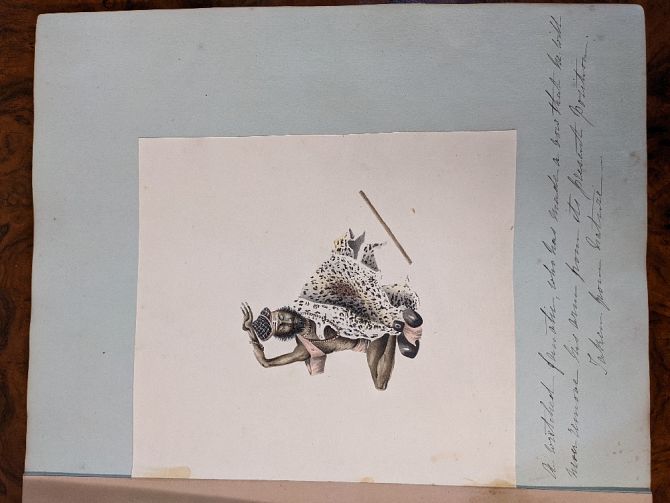 A wretched fanatic, who has made a vow that he will
never remove his arm from its present position.
Taken from Nature.